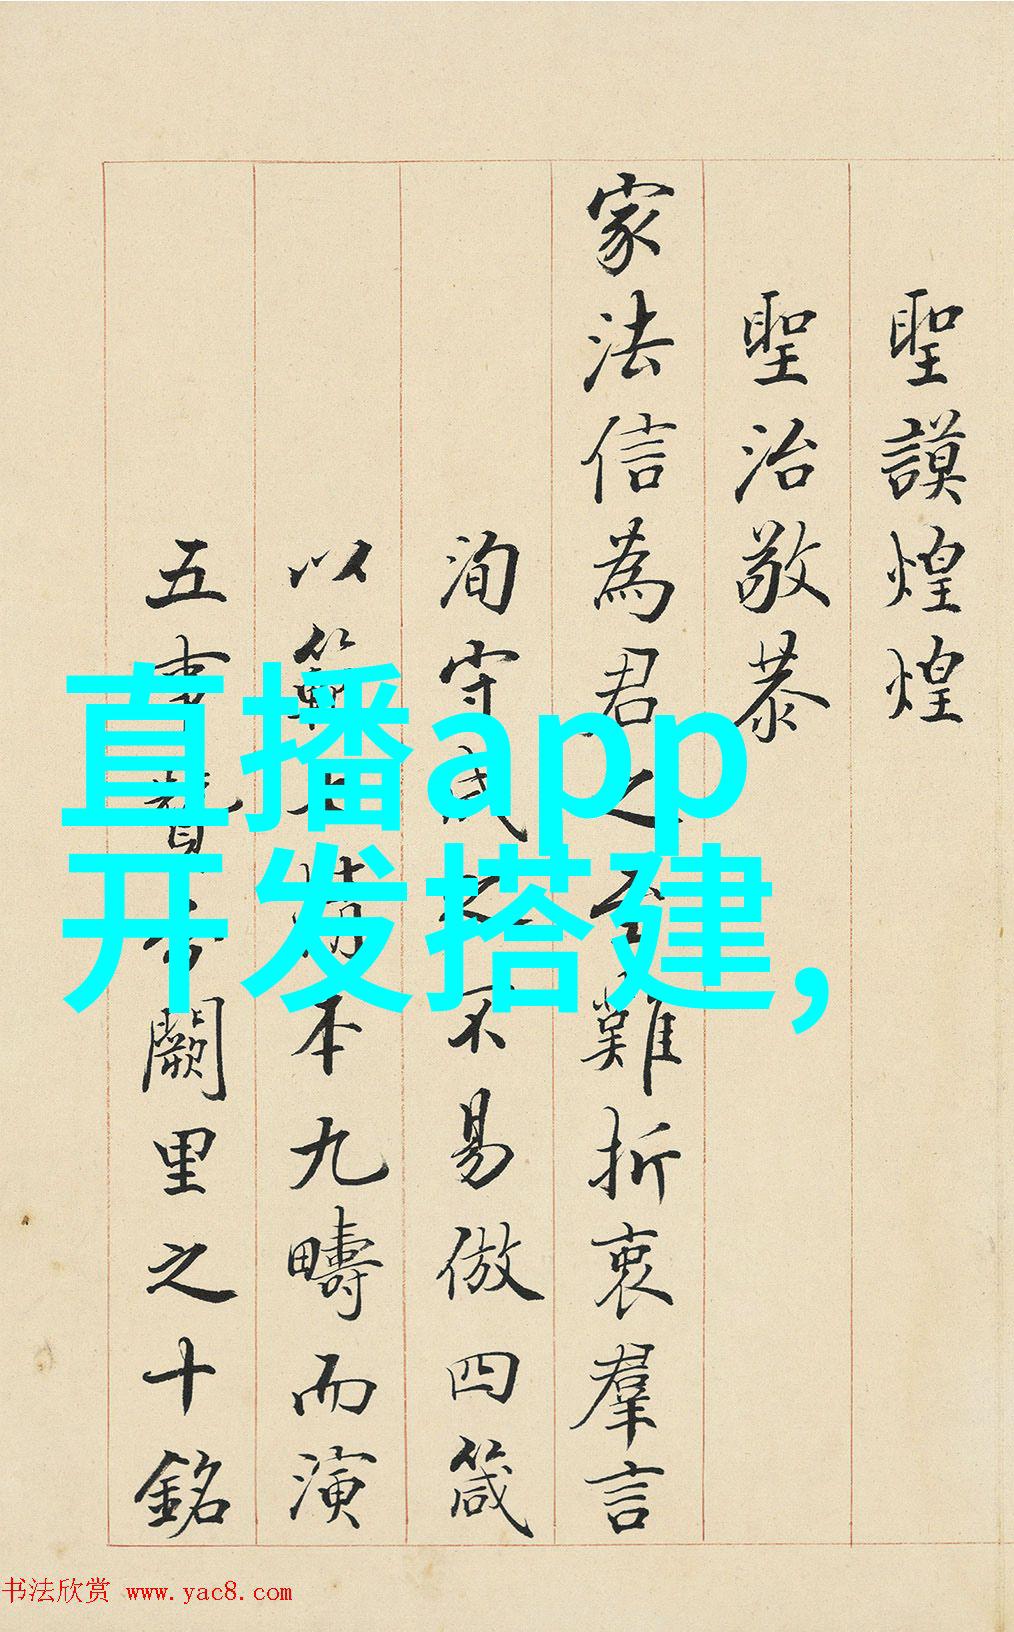 聖謨煌煌
聖治敬恭
家法信為君之至難折衷羣言
洵守成之不易倣四箴
以範情本九疇而演
五事闕里之十銘
直播app
开发搭建,
书法欣赏 www.yac8.com